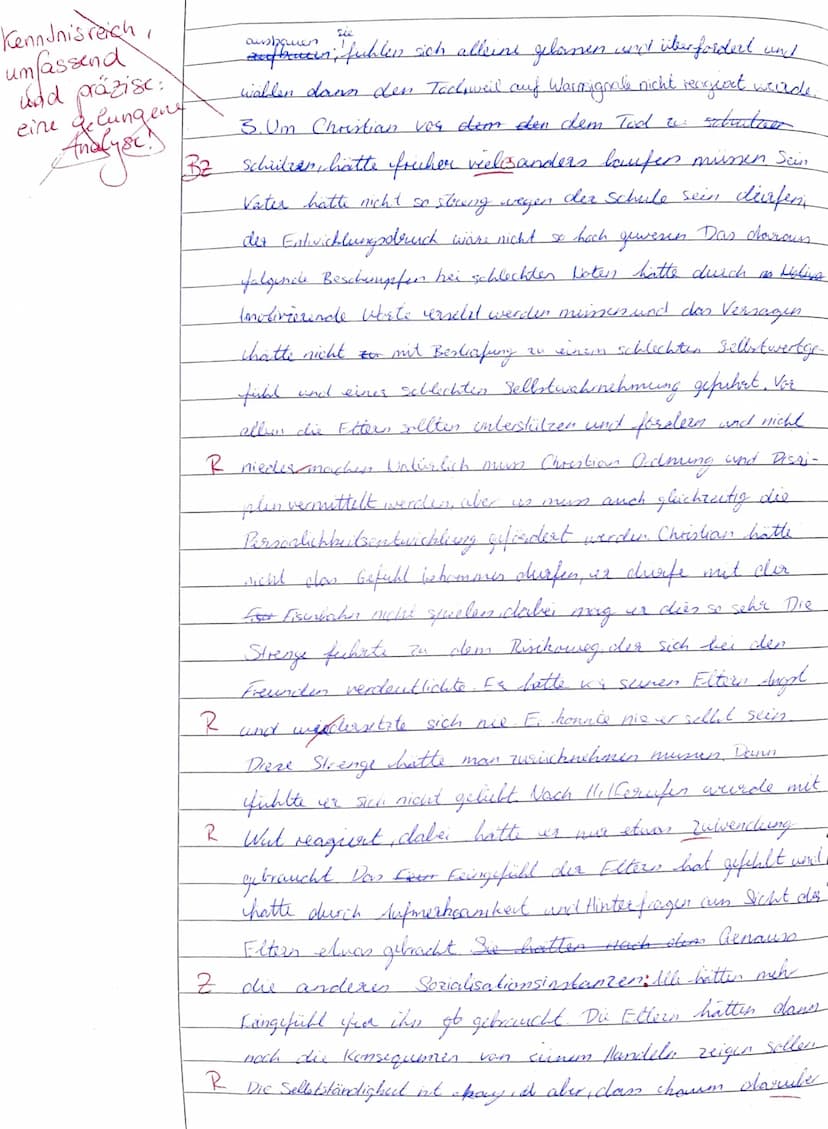 Kenntnisreich,
umfassend
und präzise:
eine gelungene
Analyse!
ausbauen sie
fühlen sich alleine gelassen und überfordert und
wählen dann den Tod, weil auf Warnsignale nicht reagiert wurde.
3. Um Christian vor dem den dem Tod zu schützen
Bz schützen, hätte früher vieles anders laufen müssen. Sein
Vater hätte nicht so streng wegen der Schule sein dürfen,
der Entwicklungsdruck wäre nicht so hoch gewesen. Das daraus
folgende Beschimpfen bei schlechten Noten hätte durch
motivierende Worte ersetzt werden müssen und das Versagen
hätte nicht mit Bestrafung zu einem schlechten Selbstwertge-
fühl und einer schlechten Selbstwahrnehmung geführt. Vor
allem die Eltern sollten unterstützen und fördern und nicht
R nieder machen. Natürlich muss Christian Ordnung und Diszi-
plin vermittelt werden, aber es muss auch gleichzeitig die
Persönlichkeitsentwicklung gefördert werden. Christian hätte
nicht das Gefühl bekommen dürfen, er dürfe mit der
Eisenbahn nicht spielen, dabei mag er dies so sehr. Die
Strenge führte zu dem Risikoweg, der sich bei den
Freunden verdeutlichte. Er hatte vor seinen Eltern Angst
R und wiedersetzte sich nie. Er konnte nie er selbst sein.
Diese Strenge hätte man zurücknehmen müssen. Denn
fühlte er sich nicht geliebt. Nach Hilferufen wurde mit
R Wut reagiert, dabei hätte er nur etwas Zuwendung
gebraucht. Das Feingefühl der Eltern hat gefehlt und
hätte durch Aufmerksamkeit und Hinterfragen aus Sicht der
Eltern etwas gebracht. Sie hätten nach dem Genauso
Z die anderen Sozialisationsinstanzen: Alle hätten mehr
Feingefühl für ihn gebraucht. Die Eltern hätten dann
noch die Konsequenzen von seinem Handeln zeigen sollen.
R Die Selbstständigkeit ist okay, aber, dass kaum darüber